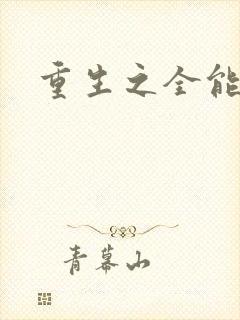 重生之全能
青幕山